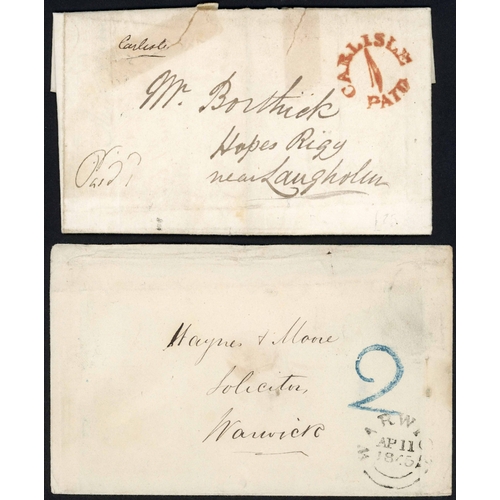 Carlisle
CARLISLE
PAID
Mr. Borthick
Hopes Rigg
near Langholm
Paid
Haynes & Moore
Solicitors
Warwick
2
WARWICK
AP 11
1845